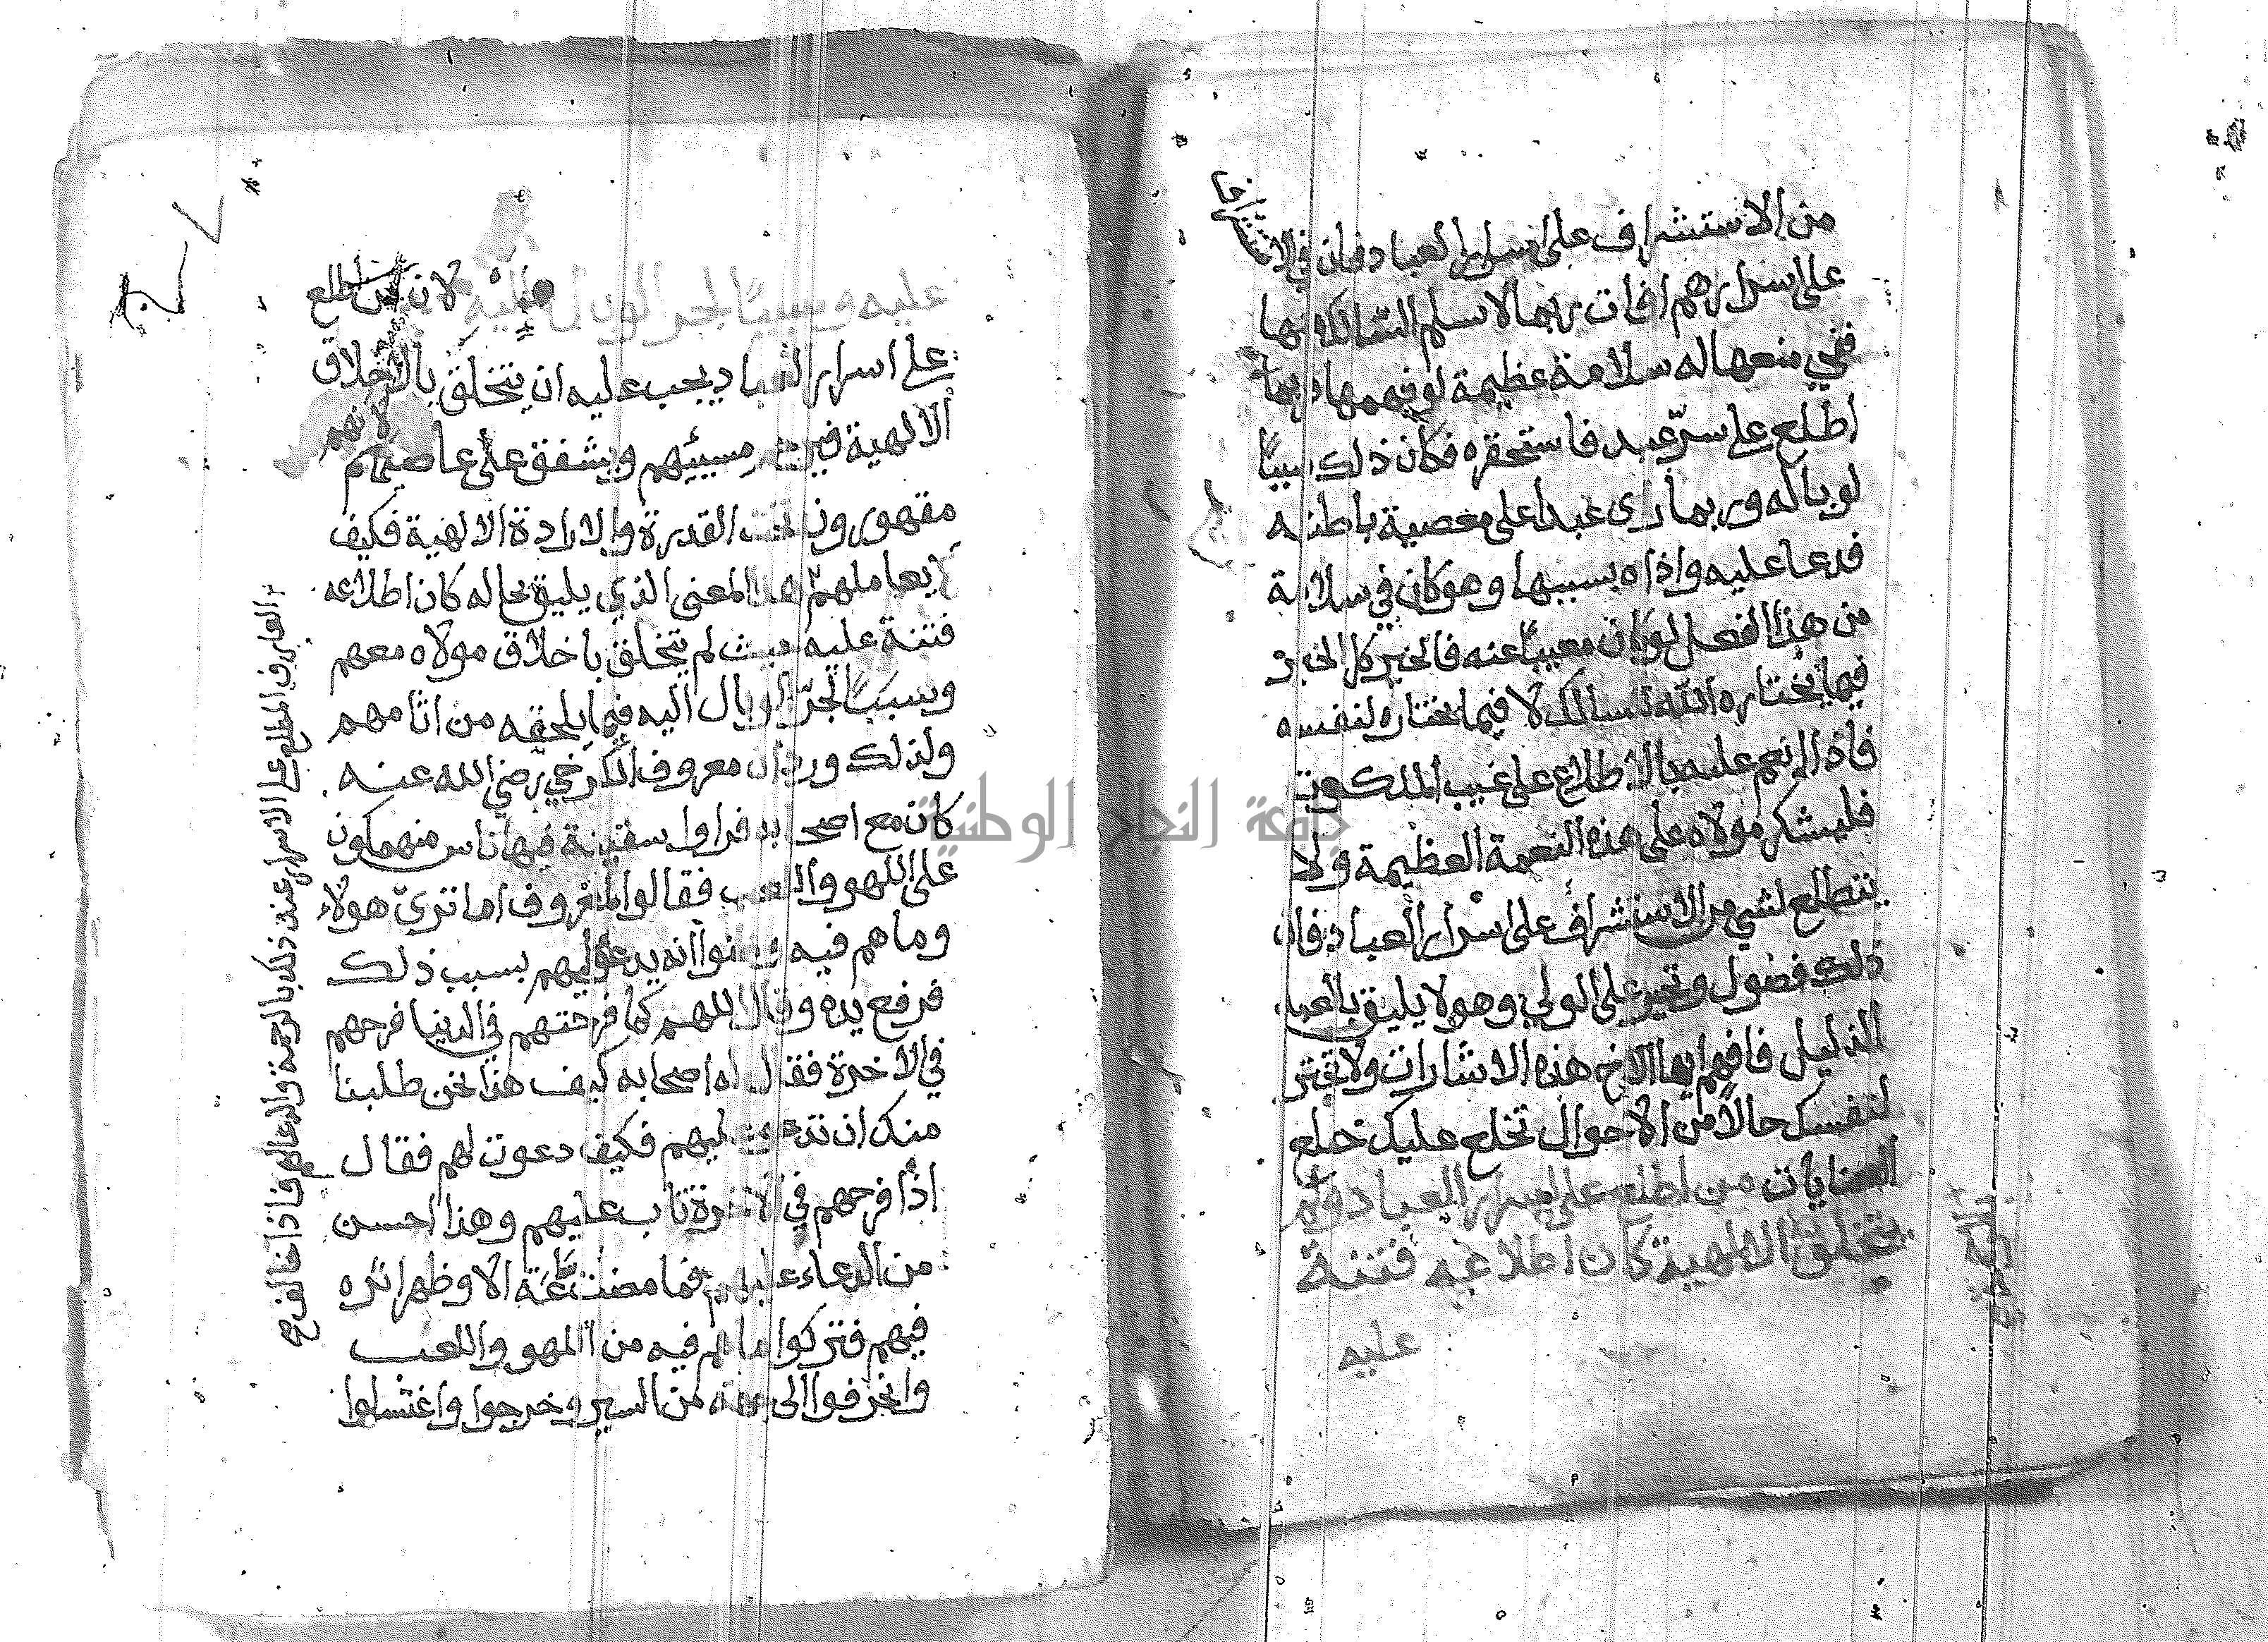 من الاستشراف على اسرار العباد فان في الاستشراف
على اسرارهم افات ربما لا يسلم السالك منها
ففي منعها له سلامة عظيمة لو فهمها فربما
اطلع على سرّ عبد فاستحقره فكان ذلك سببًا
لوباله وربما راى عبدا على معصية باطنه
فدعا عليه واذاه بسببها وهو كان في سلامة
من هذا الفعل لو كان معيبًا عنه فالخير كل الخير
فيما يختاره الله للسالك لا فيما يختاره لنفسه
فاذا انعم عليه بالاطلاع على غيب الملكوت
فليشكر مولاه على هذه النعمة العظيمة ولا
يتطلع لشي من الاستشراف على اسرار العباد فان
ذلك فضول على الولي وهو لا يليق بالعبد
الذليل فافهم ايها الاخ هذه الاشارات ولا تختر
لنفسك حالاً من الاحوال تخلع عليك خلع
العنايات من اطلع على اسرار العباد ولم
يتخلق الالهية كان اطلاعه فتنة
عليه
عليه وسببًا لجر الوبال اليه لان من اطلع
على اسرار العباد يجب عليه ان يتخلق بالاخلاق
الالهية فيرحم مسيئهم ويشفق على عاصيهم لانهم
مقهورون تحت القدرة والارادة الالهية فكيف
لا يعاملهم بهذا المعنى الذي يليق بحاله كان اطلاعه
فتنة عليه حيث لم يتخلق باخلاق مولاه معهم
وسببًا لجرّ الوبال اليه فيما يلحقه من اثامهم
ولذلك ورد ان معروف الكرخي رضي الله عنه
كان مع اصحابه فراوا سفينة فيها ناس منهمكون
على اللهو واللعب فقالوا لمعروف اما ترى هولاء
وما هم فيه وظنوا انه يدعو عليهم بسبب ذلك
فرفع يده وقال اللهم كما فرحتهم في الدنيا فرحهم
في الاخرة فقال له اصحابه كيف هذا نحن طلبنا
منك ان تدعو عليهم فكيف دعوت لهم فقال
اذا فرحهم في الاخرة تاب عليهم وهذا احسن
من الدعاء عليهم فما مضت ساعة الا وظهر اثره
فيهم فتركوا ما هم فيه من اللهو واللعب
وانحرفوا الى جهة من السير وخرجوا واغتسلوا
العارف المطلع على الاسرار عند ذلك بالرحمة والدعا لهم فاذا خالف
جامعة النجاح الوطنية